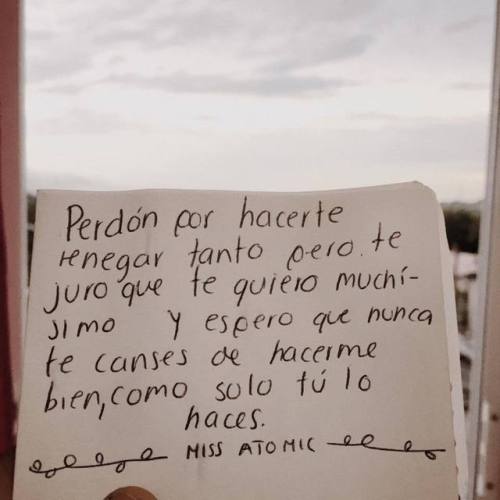 Perdón por hacerte
renegar tanto pero te
juro que te quiero muchí-
simo y espero que nunca
te canses de hacerme
bien, como solo tú lo
haces.
MISS ATOMIC